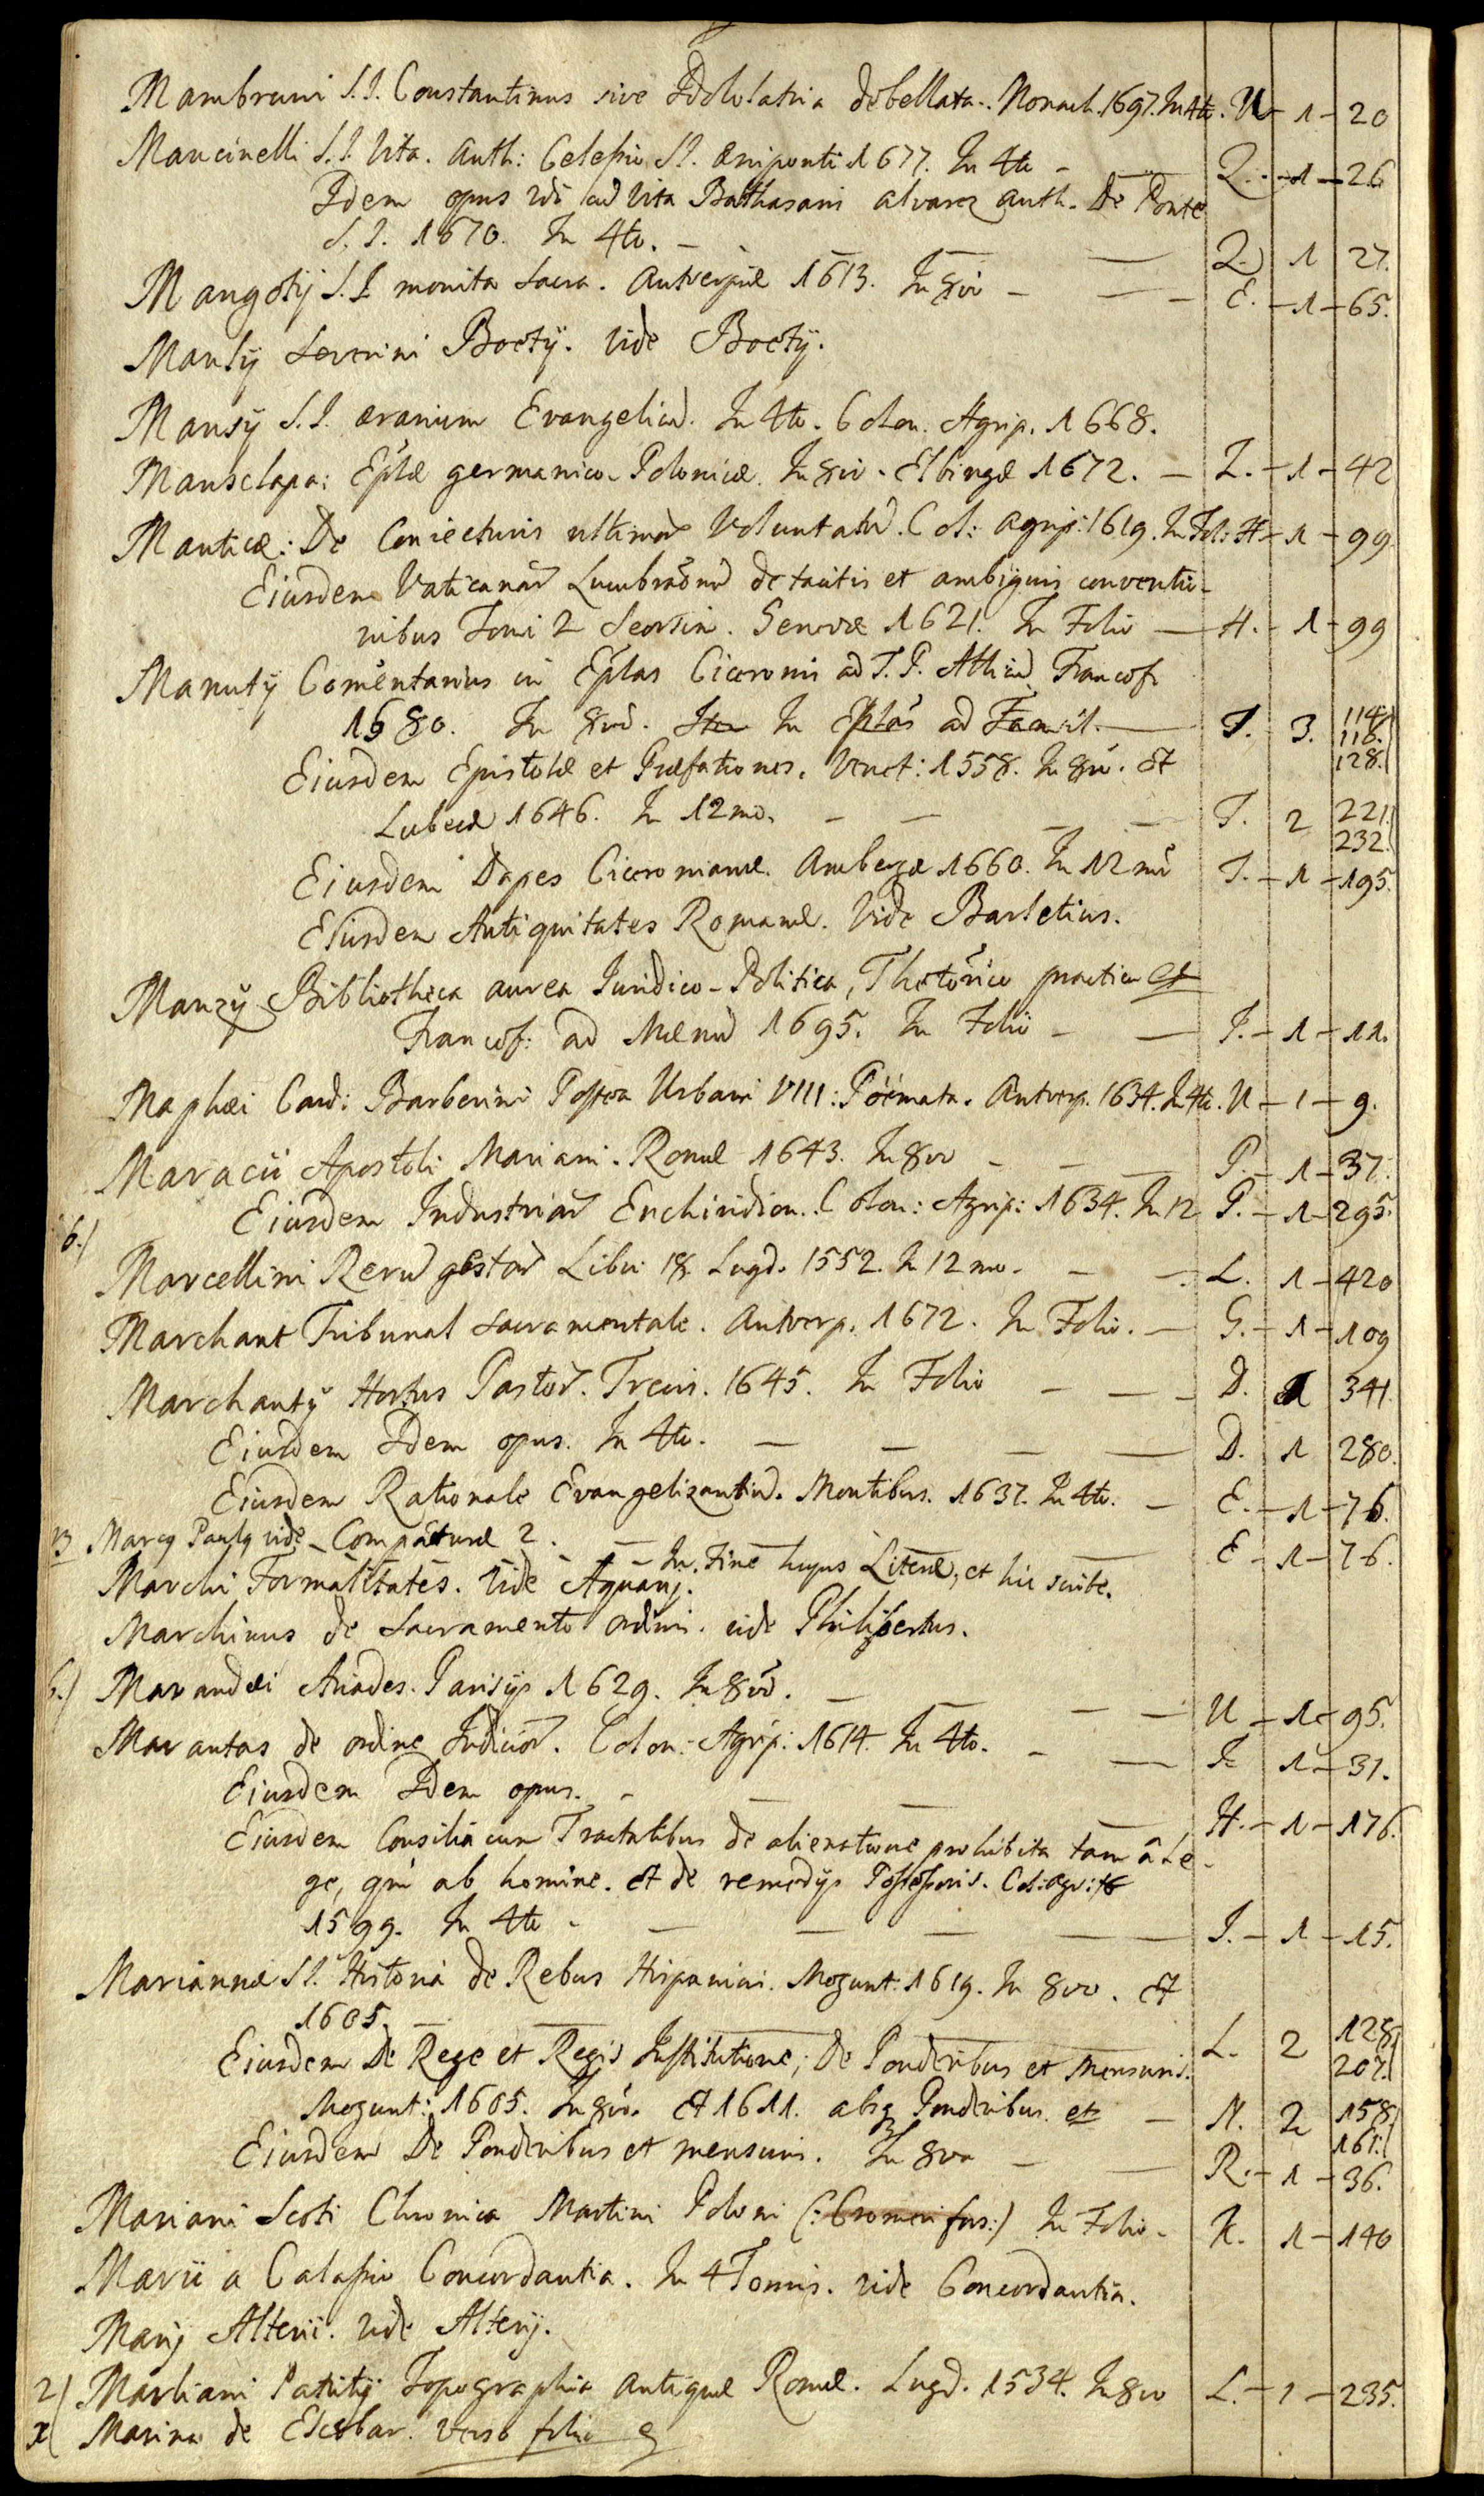 Mambruni S.I. Constantinus sive Idololatria debellata. Monach. 1697. In 4to. U - 1 - 20
Mancinelli S.I. Vita. Auth: Celesio S.I. Æniponti 1677. In 4to - Q. - 1 - 26
Idem opus vide ad Vita Balthasari Alvarez auth. De Ponte
S.I. 1670. In 4to. - Q. 1 27.
Mangotij S.I. monita Sacra. Antverpiæ 1613. In 8vo - E. - 1 - 65.
Manlij Severini Boetij. vide Boetij.
Mansij S.I. ærarium Evangelicū. In 4to. Colon. Agrip. 1668.
Mansclapa: Eplæ germanico-Polonicæ. In 8vo. Elbingæ 1672. - Z. - 1 - 42
Manticæ: De Coniecturis ultimar Voluntatū. Col: Agrip: 1619. In Fol: H - 1 - 99
Eiusdem Vaticanar Lucubraõnū de tacitis et ambiguis conventio-
nibus Tomi 2 Seorsim. Genevæ 1621. In Folio - H. - 1 - 99
Manutij Comentarius in Eplas Ciceronis ad T. P. Atticū Francof.
1580. In 8vo. Item In Eplas ad Famil. - T. 3. 114. 118. 128.
Eiusdem Epistolæ et Præfationes. Venet: 1558. In 8vo. Et
Lubecæ 1646. In 12mo. - T. 2 221. 232.
Eiusdem Dapes Ciceronianæ. Ambergæ 1660. In 12mo T. - 1 - 195.
Eiusdem Antiquitates Romanæ. Vide Barletius.
Manzij Bibliotheca aurea Iuridico-Politica, Theorico practica et
Francof: ad Mænū 1695. In Folio - I. - 1 - 11.
Maphæi Card: Barberini Postea Urbani VIII: Poëmata. Antverp. 1634. In 4to. U - 1 - 9.
Maracii Apostoli Mariani. Romæ 1643. In 8vo - P. - 1 - 37.
Eiusdem Industriar Enchiridion. Colon: Agrip: 1634. In 12 P. - 1 - 295.
6.) Marcellini Rerū gestar Libri 18. Lugd. 1552. In 12mo. - L. 1 - 420
Marchant Tribunal Sacramentale. Antverp. 1672. In Folio. - G. - 1 - 109
Marchantij Hortus Pastor. Treviris. 1645. In Folio - D. 1 341.
Eiusdem Idem opus. In 4to. - D. 1 280.
Eiusdem Rationale Evangelizantiū. Montibus. 1637. In 4to. - E. - 1 - 76.
Marcq Paulq vide Compăcturæ 2. - In Fine hujus Literæ, et hic scribe. E - 1 - 76.
Marchi Formalitates. Vide Aquanj.
Marchinus de Sacramento ordinis. vide Philibertus.
6.) Marandæi Ariades. Parisijs 1629. In 8vo. - U - 1 - 95.
Marantas de ordine Iudicior. Colon: Agrip: 1614. In 4to. - I. 1 - 31.
Eiusdem Idem opus. - H. - 1 - 176.
Eiusdem Consilia cum Tractatibus de alienatione prohibita tam â Le-
ge, qm ab homine. Et de remedijs Possessoris. Col: Agr:
1599. In 4to - I. - 1 - 15.
Mariannæ S.I. Historia de Rebus Hispanicis. Mogunt: 1619. In 8vo. Et
1605. - L. 2 128. 207.
Eiusdem De Rege et Regis Institutione; De Ponderibus et Mensuris.
Mogunt: 1605. In 8vo. Et 1611. absq Ponderibus et - N. 2 158. 161.
Eiusdem De Ponderibus et mensuris. In 8vo - R. - 1 - 36.
Mariani Scoti Chronica Martini Poloni (: Cromeri :) In Folio - K. 1 - 140
Marii a Calasio Concordantia. In 4 Tomis. vide Concordantia.
Marij Alterii. vide Alterij.
2) Marliani Patritij Topographia antiquæ Romæ. Lugd. 1534. In 8vo L. - 1 - 235.
x( Marina de Escobar. verso folio